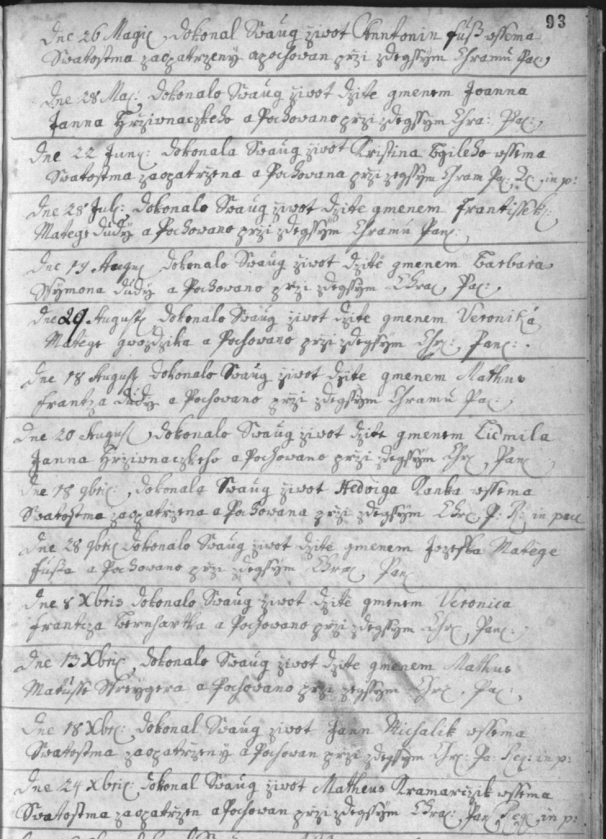 93
Dne 26 Magij Dokonal Swaug žiwot Anntonin Fuss wssema
Swatostma zaopatrzeny a pochowan przi zdegssym Chramu Pa:
Dne 28 Maj: dokonalo Swaug žiwot Dzite gmenem Joanna
Janna Hrziwnaczkeho a Pochowano przi zdegssym Chra: Pa:
Dne 22 Juny: dokonala Swaug žiwot Kristina wssema
Swatostma zaopatrzena a Pochowana przi zdegssym Chram Pa: in p:
Dne 28 July: dokonalo Swaug žiwot dzite gmenem Frantissek:
Matege Dudy a Pochowano przi zdegssym Chramu Pan:
Dne Augus dokonalo Swaug žiwot dzite gmenem Barbara
Ssymona Dudy a Pochowano przi zdegssym Chra: Pa:
Dne 29 August dokonalo Swaug žiwot dzite gmenem Veronika
Matege gwozdzika a Pochowano przi zdegssym Chr: Pan:
Dne 18 August dokonalo Swaug žiwot dzite gmenem Mathus
Frantza Dudy a Pochowano przi zdegssym Chramu Pa:
Dne 20 August dokonalo Swaug žiwot dzite gmenem Lidmila
Janna Hrziwnaczkeho a Pochowano przi zdegssym Chr: Pan:
Dne 18 9bris, dokonala Swaug žiwot Hedwiga Kanka wssema
Swatostma zaopatrzena a Pochowana przi zdegssym Chr: P: in pace
Dne 28 9bris dokonalo Swaug žiwot dzite gmenem Jozefka Matege
Fussa a Pochowano przi zdegssym Chra: Pan:
Dne 8 Xbris dokonalo Swaug žiwot dzite gmenem Veronica
Frantza Bernhartka a Pochowano przi zdegssym Chr: Pan:
Dne 13 Xbris, dokonalo Swaug žiwot dzite gmenem Mathus
Matusse a Pochowano przi zdegssym Chr: Pa:
Dne 18 Xbr: dokonal Swaug žiwot Jann Michalik wssema
Swatostma zaopatrzeny a Pochowan przi zdegssym Chr: Pa: Req: in p:
Dne 24 Xbris: dokonal Swaug žiwot Matheus Kramarczik wssema
Swatostma zaopatrzen a Pochowan przi zdegssym Chra: Pan Req in p: